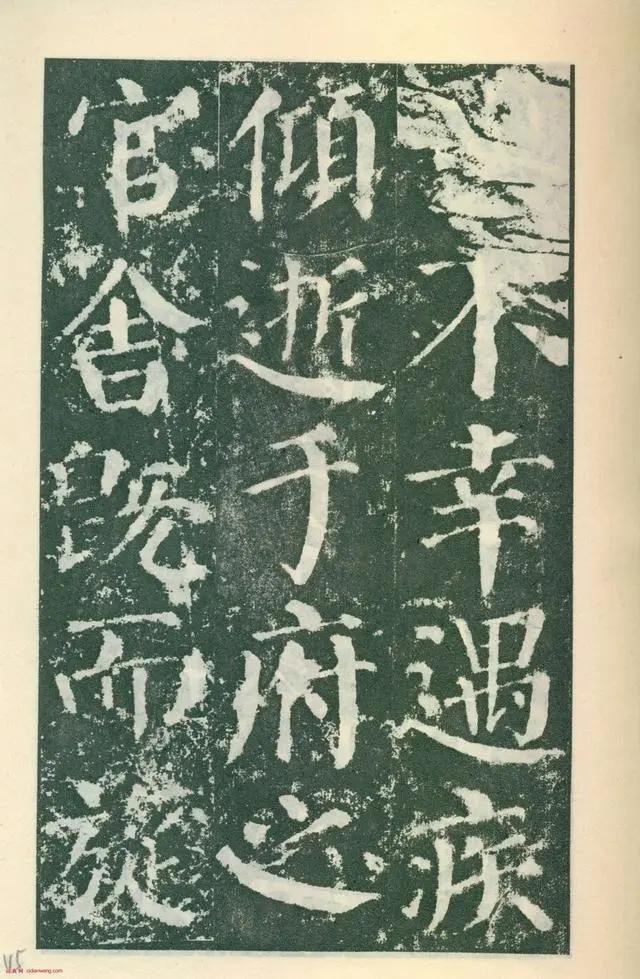 不幸遇疾
傾逝于府之
官舍既而旋
cidianwang.com